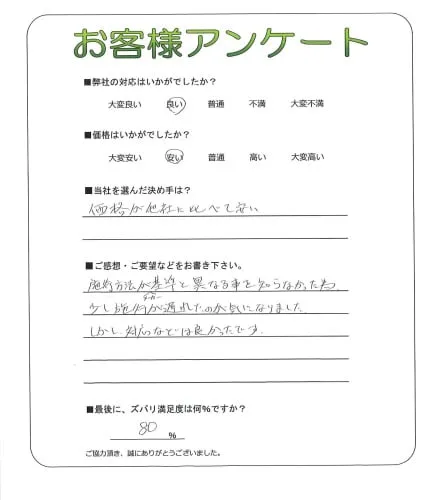 お客様アンケート
■弊社の対応はいかがでしたか？
大変良い 良い 普通 不満 大変不満
■価格はいかがでしたか？
大変安い 安い 普通 高い 大変高い
■当社を選んだ決め手は？
価格が他社に比べて安い
■ご感想・ご要望などをお書き下さい。
施術方法が基準と異なる事を知らなかった為、
少し施術が遅れたのが気になりました
しかし対応などは良かったです。
■最後に、ズバリ満足度は何％ですか？
80 %
ご協力頂き、誠にありがとうございました。